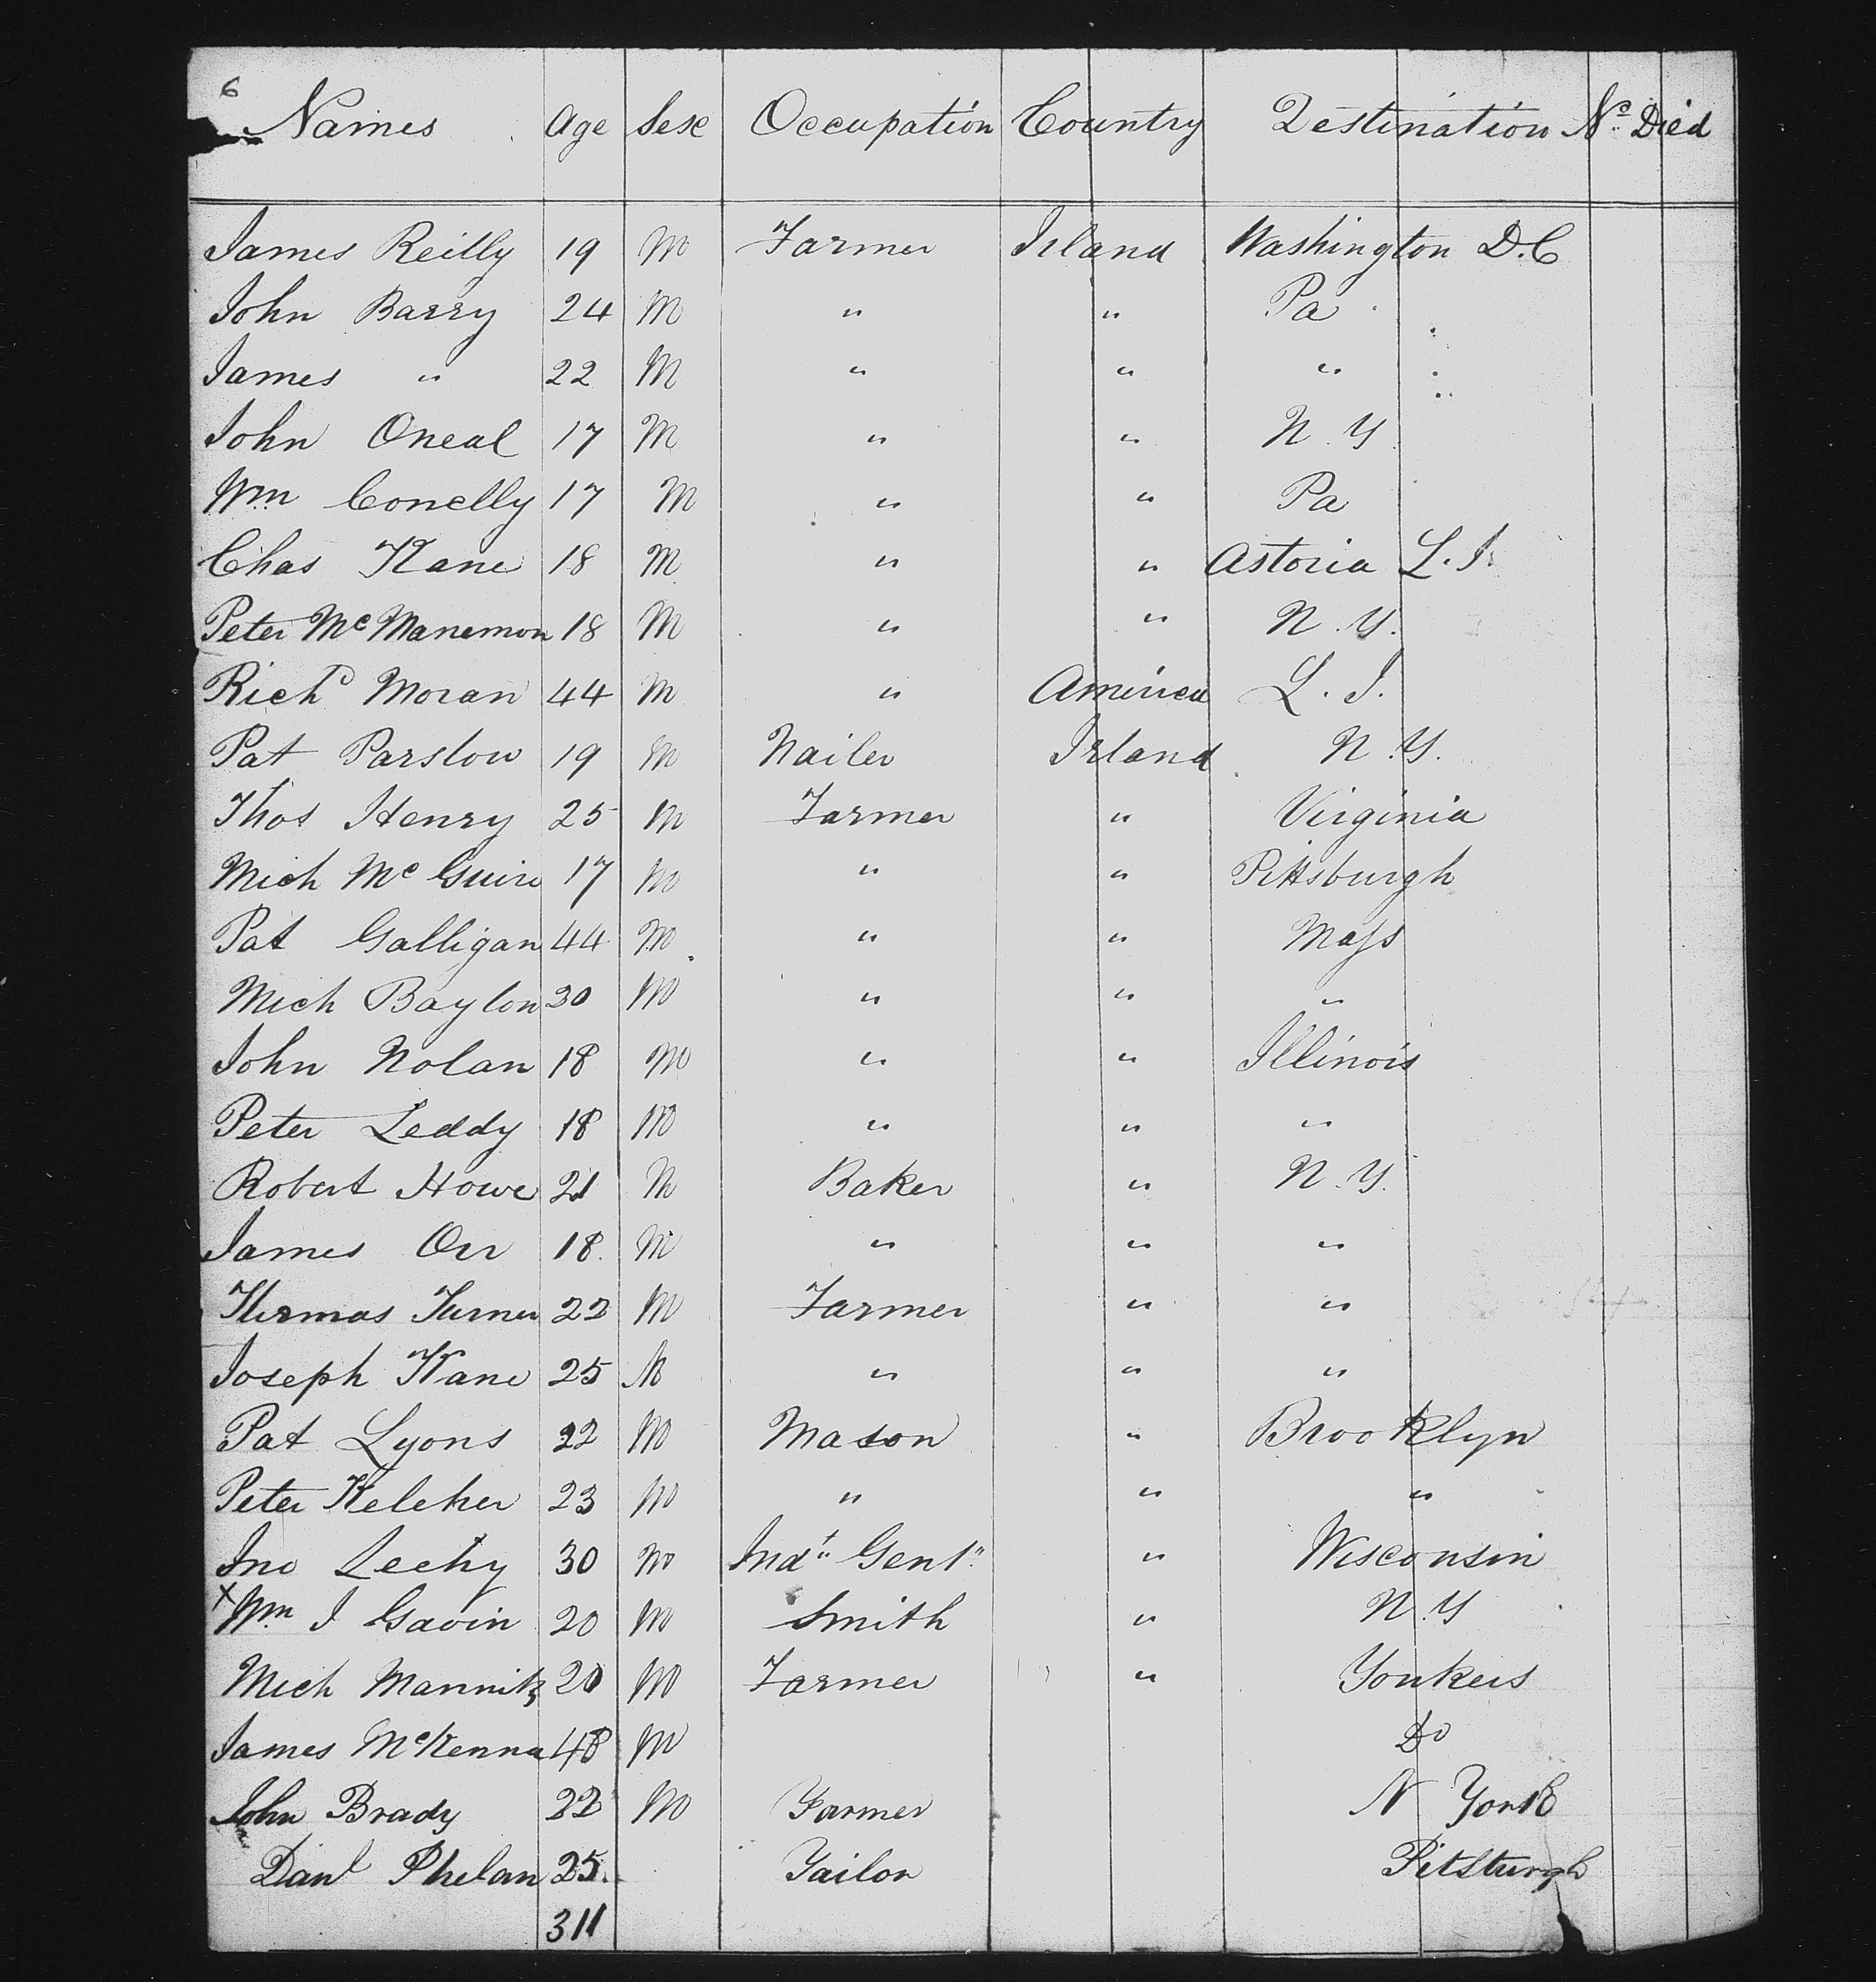 6
Names Age Sex Occupation Country Destination No Died
James Reilly 19 M Farmer Irland Washington D.C
John Barry 24 M " " Pa
James " 22 M " " "
John Oneal 17 M " " N.Y.
Wm Conelly 17 M " " Pa
Chas Kane 18 M " " Astoria L.I.
Peter Mc Manemon 18 M " " N.Y.
Richd Moran 44 M " America L.I.
Pat Parslow 19 M Nailer Irland N.Y.
Thos Henry 25 M Farmer " Virginia
Mich Mc Guire 17 M " " Pittsburgh
Pat Galligan 44 M " " Mass
Mich Baylon 30 M " " "
John Nolan 18 M " " Illinois
Peter Leddy 18 M " " "
Robert Howe 21 M Baker " N.Y.
James Orr 18 M " " "
Thomas Turner 22 M Farmer " "
Joseph Kane 25 M " " "
Pat Lyons 22 M Mason " Brooklyn
Peter Keleher 23 M " " "
Jno Leehy 30 M Indt Gent " Wisconsin
x Wm J Gavin 20 M Smith " N.Y
Mich Mannitz 20 M Farmer " Yonkers
James McKenna 48 M Do
John Brady 22 M Farmer N York
Danl Phelan 25 Tailor Pittsturgh
311